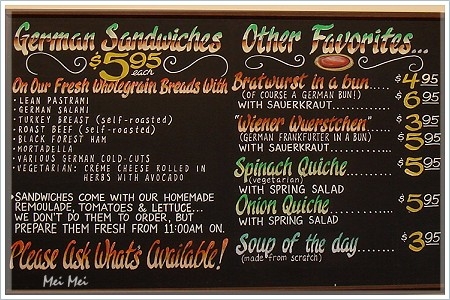 German Sandwiches
$5.95
each
On Our Fresh Wholegrain Breads With
·LEAN PASTRAMI
·GERMAN SALAMI
·TURKEY BREAST (self-roasted)
·ROAST BEEF (self-roasted)
·BLACK FOREST HAM
·MORTADELLA
·VARIOUS GERMAN COLD-CUTS
·VEGETARIAN: CRÈME CHEESE ROLLED IN
HERBS WITH AVOCADO
·SANDWICHES COME WITH OUR HOMEMADE
REMOULADE, TOMATOES & LETTUCE...
WE DON'T DO THEM TO ORDER, BUT
PREPARE THEM FRESH FROM 11:00AM ON.
Please Ask What's Available!
Other Favorites...
Bratwurst in a bun..... $4.95
(OF COURSE A GERMAN BUN!)
WITH SAUERKRAUT......... $6.95
"Wiener Wuerstchen" $3.95
(GERMAN FRANKFURTER IN A BUN)
WITH SAUERKRAUT.......... $5.95
Spinach Quiche....... $5.95
(vegetarian)
WITH SPRING SALAD
Onion Quiche......... $5.95
WITH SPRING SALAD
Soup of the day...... $3.95
(made from scratch)
Mei Mei